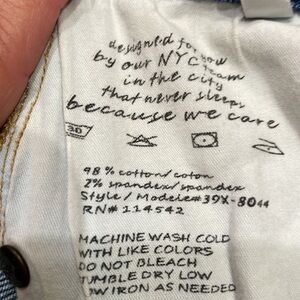 designed for you
by our NYC team
in the city
that never sleeps
because we care
30
98 % cotton/coton
2% spandex/spandex
Style / Modele# 39X-8044
RN# 114542
MACHINE WASH COLD
WITH LIKE COLORS
DO NOT BLEACH
TUMBLE DRY LOW
IRON AS NEEDED